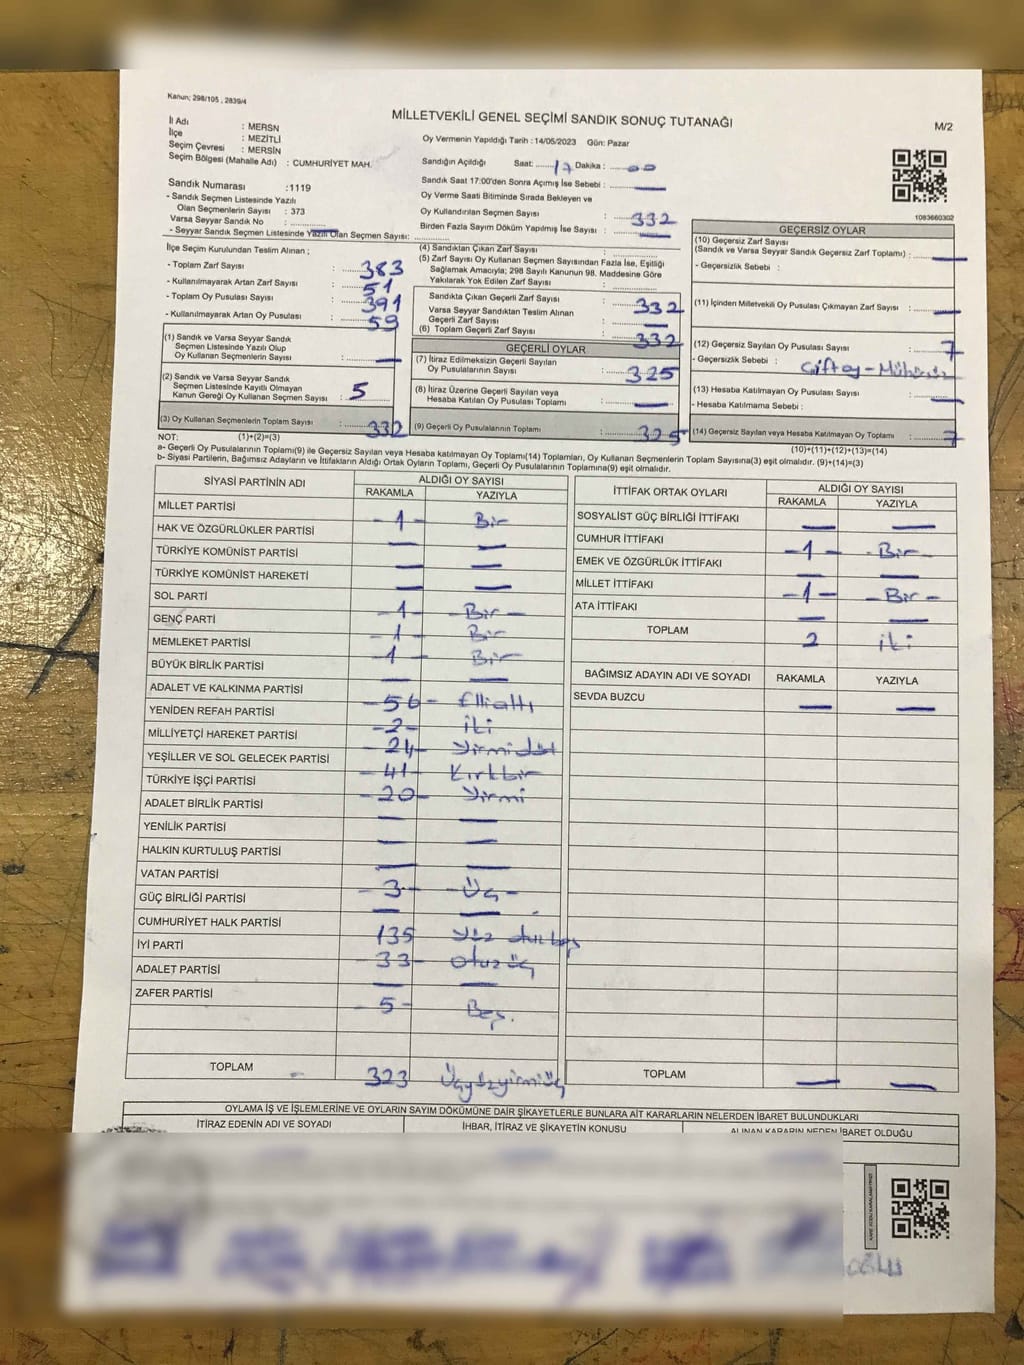 Kanun; 298/105 , 2839/4
MİLLETVEKİLİ GENEL SEÇİMİ SANDIK SONUÇ TUTANAĞI
M/2
İl Adı : MERSN
İlçe : MEZİTLİ
Seçim Çevresi : MERSİN
Seçim Bölgesi (Mahalle Adı) : CUMHURİYET MAH.
Oy Vermenin Yapıldığı Tarih : 14/05/2023 Gün: Pazar
Sandığın Açıldığı Saat: 17 Dakika : 00
Sandık Saat 17:00'den Sonra Açımış İse Sebebi : —
Oy Verme Saati Bitiminde Sırada Bekleyen ve
Oy Kullandırılan Seçmen Sayısı : 332
Birden Fazla Sayım Döküm Yapılmış İse Sayısı : —
Sandık Numarası :1119
- Sandık Seçmen Listesinde Yazılı
Olan Seçmenlerin Sayısı : 373
Varsa Seyyar Sandık No :
- Seyyar Sandık Seçmen Listesinde Yazılı Olan Seçmen Sayısı: —
1083660302
İlçe Seçim Kurulundan Teslim Alınan ;
- Toplam Zarf Sayısı : 383
- Kullanılmayarak Artan Zarf Sayısı : 51
- Toplam Oy Pusulası Sayısı : 391
- Kullanılmayarak Artan Oy Pusulası : 59
(1) Sandık ve Varsa Seyyar Sandık
Seçmen Listesinde Yazılı Olup
Oy Kullanan Seçmenlerin Sayısı : —
(2) Sandık ve Varsa Seyyar Sandık
Seçmen Listesinde Kayıtlı Olmayan
Kanun Gereği Oy Kullanan Seçmen Sayısı : 5
(3) Oy Kullanan Seçmenlerin Toplam Sayısı : 332
(4) Sandıktan Çıkan Zarf Sayısı :
(5) Zarf Sayısı Oy Kullanan Seçmen Sayısından Fazla İse, Eşitliği
Sağlamak Amacıyla; 298 Sayılı Kanunun 98. Maddesine Göre
Yakılarak Yok Edilen Zarf Sayısı :
Sandıkta Çıkan Geçerli Zarf Sayısı : 332
Varsa Seyyar Sandıktan Teslim Alınan
Geçerli Zarf Sayısı : —
(6) Toplam Geçerli Zarf Sayısı : 332
GEÇERLİ OYLAR
(7) İtiraz Edilmeksizin Geçerli Sayılan
Oy Pusulalarının Sayısı : 325
(8) İtiraz Üzerine Geçerli Sayılan veya
Hesaba Katılan Oy Pusulası Toplamı : —
(9) Geçerli Oy Pusulalarının Toplamı : 325
GEÇERSİZ OYLAR
(10) Geçersiz Zarf Sayısı
(Sandık ve Varsa Seyyar Sandık Geçersiz Zarf Toplamı) : —
- Geçersizlik Sebebi :
(11) İçinden Milletvekili Oy Pusulası Çıkmayan Zarf Sayısı : —
(12) Geçersiz Sayılan Oy Pusulası Sayısı : 7
- Geçersizlik Sebebi : Çift oy - Mühürsüz
(13) Hesaba Katılmayan Oy Pusulası Sayısı : —
- Hesaba Katılmama Sebebi :
(14) Geçersiz Sayılan veya Hesaba Katılmayan Oy Toplamı : 7
NOT: (1)+(2)=(3)
(10)+(11)+(12)+(13)=(14)
a- Geçerli Oy Pusulalarının Toplamı(9) ile Geçersiz Sayılan veya Hesaba katılmayan Oy Toplamı(14) Toplamları, Oy Kullanan Seçmenlerin Toplam Sayısına(3) eşit olmalıdır. (9)+(14)=(3)
b- Siyasi Partilerin, Bağımsız Adayların ve İttifakların Aldığı Ortak Oyların Toplamı, Geçerli Oy Pusulalarının Toplamına(9) eşit olmalıdır.
SİYASİ PARTİNİN ADI ALDIĞI OY SAYISI
RAKAMLA YAZIYLA
MİLLET PARTİSİ -1- Bir
HAK VE ÖZGÜRLÜKLER PARTİSİ — —
TÜRKİYE KOMÜNİST PARTİSİ — —
TÜRKİYE KOMÜNİST HAREKETİ — —
SOL PARTİ -1- -Bir-
GENÇ PARTİ -1- Bir
MEMLEKET PARTİSİ 1 Bir
BÜYÜK BİRLİK PARTİSİ — —
ADALET VE KALKINMA PARTİSİ -56- Elli altı
YENİDEN REFAH PARTİSİ -2- iki
MİLLİYETÇİ HAREKET PARTİSİ -24- Yirmi dört
YEŞİLLER VE SOL GELECEK PARTİSİ -41- Kırkbir
TÜRKİYE İŞÇİ PARTİSİ -20- Yirmi
ADALET BİRLİK PARTİSİ — —
YENİLİK PARTİSİ — —
HALKIN KURTULUŞ PARTİSİ — —
VATAN PARTİSİ -3- -Üç-
GÜÇ BİRLİĞİ PARTİSİ — —
CUMHURİYET HALK PARTİSİ 135 yüz otuz beş
İYİ PARTİ -33- otuz üç
ADALET PARTİSİ — —
ZAFER PARTİSİ 5- Beş.
TOPLAM 323 Üçyüzyirmiüç
İTTİFAK ORTAK OYLARI ALDIĞI OY SAYISI
RAKAMLA YAZIYLA
SOSYALİST GÜÇ BİRLİĞİ İTTİFAKI — —
CUMHUR İTTİFAKI -1- -Bir-
EMEK VE ÖZGÜRLÜK İTTİFAKI — —
MİLLET İTTİFAKI -1- -Bir-
ATA İTTİFAKI — —
TOPLAM 2 iki
BAĞIMSIZ ADAYIN ADI VE SOYADI RAKAMLA YAZIYLA
SEVDA BUZCU — —
TOPLAM — —
OYLAMA İŞ VE İŞLEMLERİNE VE OYLARIN SAYIM DÖKÜMÜNE DAİR ŞİKAYETLERLE BUNLARA AİT KARARLARIN NELERDEN İBARET BULUNDUKLARI
İTİRAZ EDENİN ADI VE SOYADI İHBAR, İTİRAZ VE ŞİKAYETİN KONUSU ALINAN KARARIN NEDEN İBARET OLDUĞU